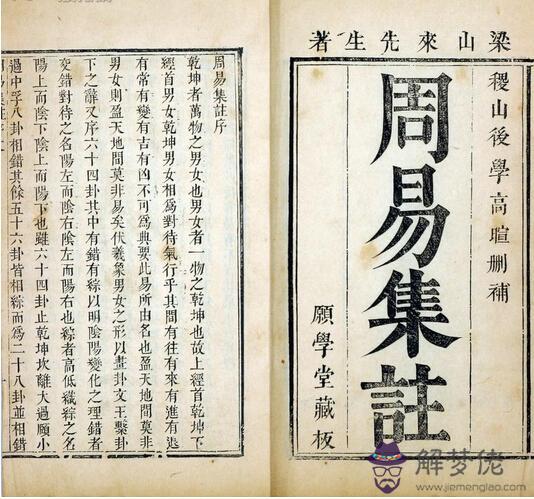 梁山來先生著
稷山後學高暄刪補
周易集註
願學堂藏板
周易集註序
乾坤者萬物之男女也男女者一物之乾坤也故上經首乾坤下
經首男女乾坤男女相爲對待氣行乎其間有往有來有進有退
有常有變有吉有凶不可爲典要此易所由名也盈天地間莫非
男女則盈天地間莫非易矣伏羲象男女之形以畫卦文王繫卦
下之辭又序六十四卦其中有錯有綜以明陰陽變化之理錯者
交錯對待之名陽左而陰右陰左而陽右也綜者高低織綜之名
陽上而陰下陰上而陽下也雖六十四卦止乾坤坎離大過頤小
過中孚八卦相錯其餘五十六卦皆相綜而爲二十八卦並相錯
解梦佬
www.jiemenglao.com